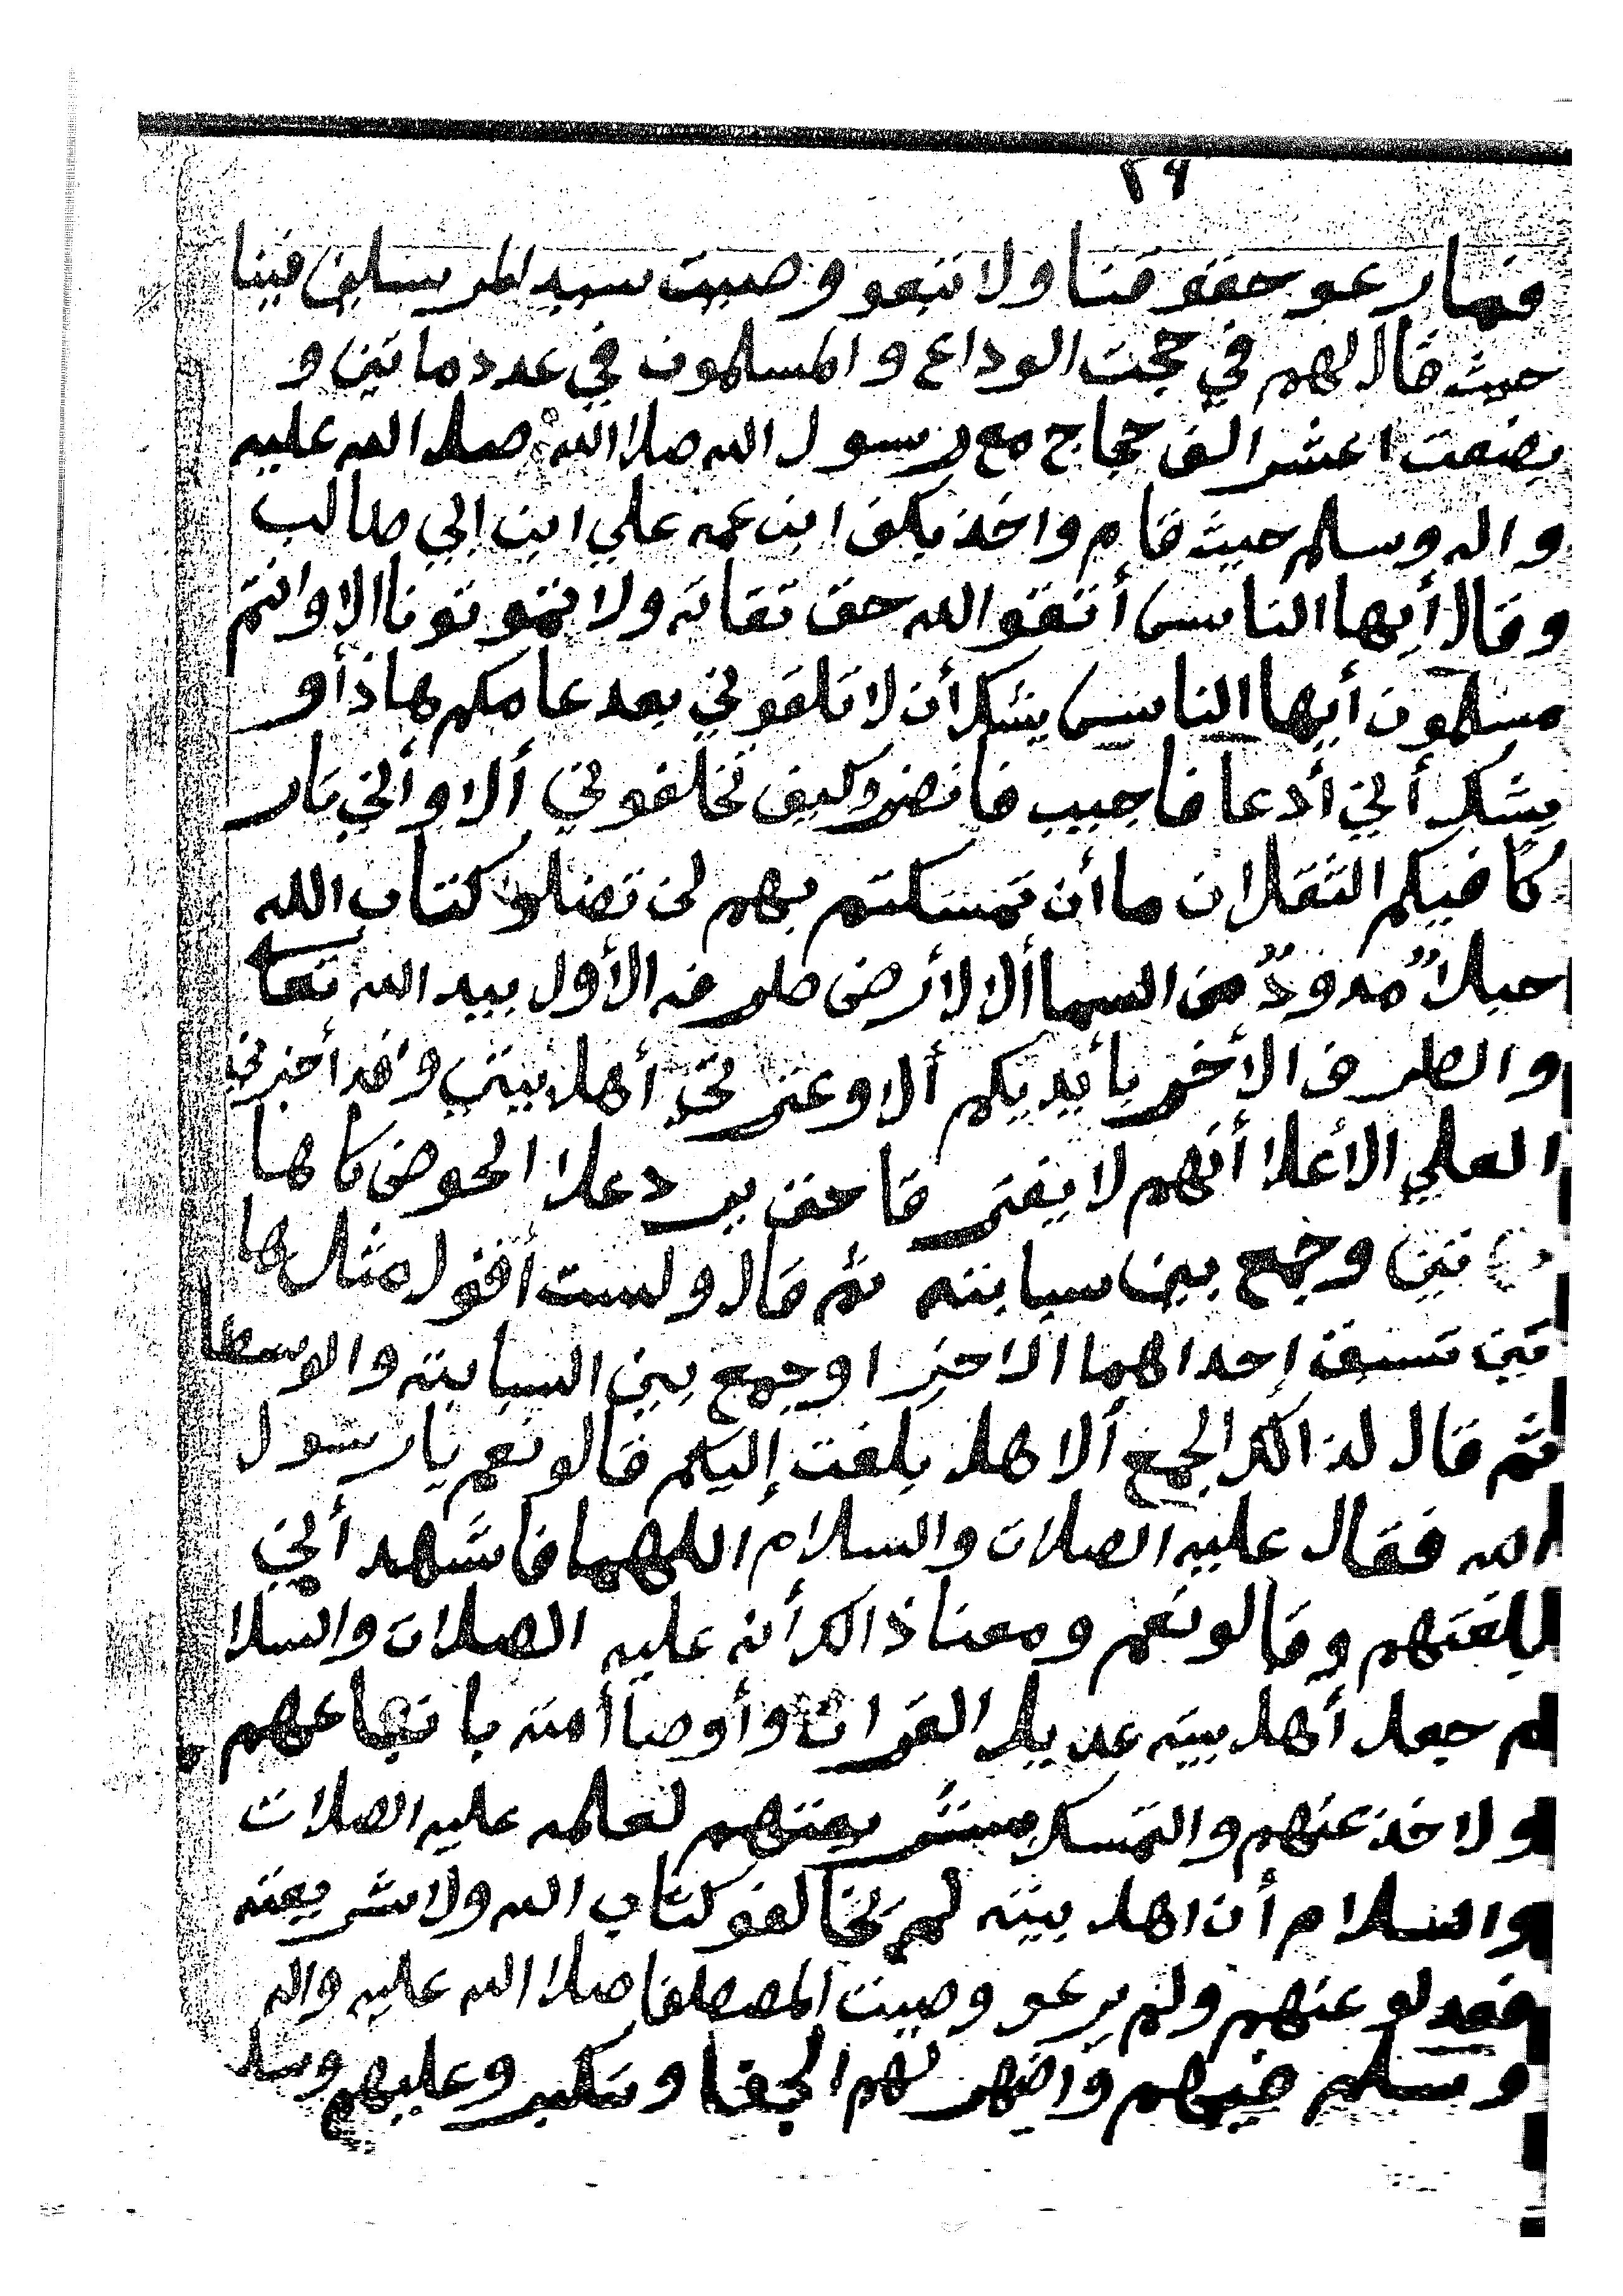 ٢٩
فما رعو حقوقنا ولا تبعو وصيت سيد المرسلين فينا
حيث قال لهم في حجت الوداع والمسلمون في عدد ماتين و
بضعت اعشر الف حجاج مع رسول الله صلا الله صلا الله عليه
واله وسلم حيث قام واخذ بكف ابن عمه علي ابن ابي طالب
وقال أيها الناس أتقو الله حق تقاته ولا تموتونا الا وانتم
مسلمون أيها الناس يشك أن لا تلقوني بعد عامكم هاذا أو
يشك أني أدعا فاجيب فانضرو كيف تخلفوني ألا وأني تار
كًا فيكم الثقلان ما أن تمسكتم بهم لن تضلو كتاب الله
حبلاً مدودٌ من السما ألا لأرض طرفه الأول بيد الله تعا
والطرف الأخر بأيديكم ألا وعترتي أهل بيتي وقد أخبرني
العلي الأعلا أنهم لا يفترقا حتى يردعلا الحوض كا لها
تين وجمع بين سبابته ثم قال ولست أقول مثل ها
تين تسبق إحدالهما الاخرا وجمع بين السبابته والوسطا
ثم قال لذالك الجمع ألا هل بلغت إليكم قالو نعم يا رسول
الله فقال عليه الصلات والسلام اللهما فاشهد أني
بلغتهم وقالو نعم ومعنا ذالك أنه عليه الصلات والسلا
م جعل أهل بيته عديل القرأن وأوصا أمته باتباعهم
ولاخذ عنهم والتمسك بشريعتهم لعلمه عليه الصلات
والسلام أن اهل بيته لم يخالفو كتاب الله ولا شريعته
فعدلو عنهم ولم يرعو وصيت المصطفا صلا الله عليه واله
وسلم فيهم واضهر لهم الجفا وتكبرو عليهم وسل